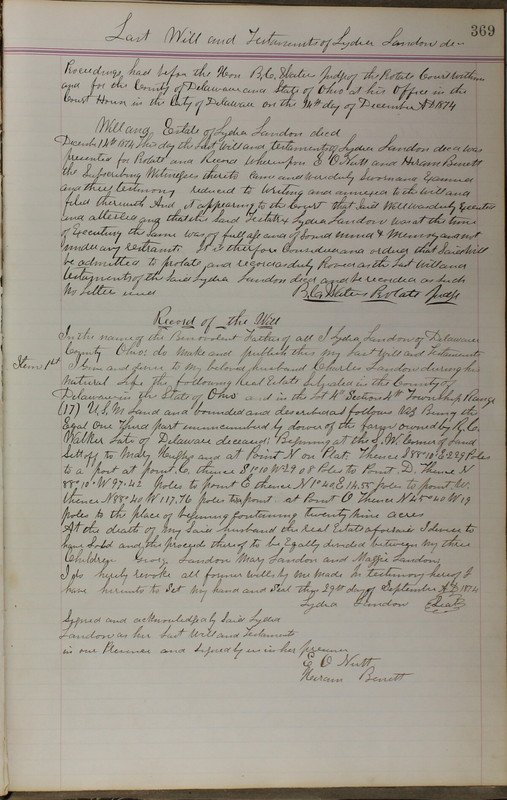 369
Last Will and Testaments of Lydia Landon de-
Proceedings had before the Hon B.C. Waters Judge of the Probate Court within
and for the County of Delaware and State of Ohio at his Office in the
Court House in the City of Delaware on the 14th day of December AD 1874
Will and Estate of Lydia Landon decd
December 14th 1874 This day the Last Will and testaments of Lydia Landon decd was
presented for Probate and Record Whereupon E O Nutt and Hiram Benett
the Subscribing Witnesses thereto Came and were duly Sworn and Examined
and their testimony reduced to Writing and annexed to the Will and
filed therewith And it appearing to the Court that Said Will was duly Executed
and attested and that the Said Testatrix Lydia Landon was at the time
of Executing the Same was of full age and of Sound mind & Memory and not
under any restraint It is therefore Considered and ordered that Said Will
be admitted to probate and record as duly Proven as the Last Will and
testaments of the Said Lydia Landon decd and be recorded as Such
No Letters B.C. Waters Probate Judge
Record of the Will
In the name of the Benevolent Father of all I Lydia Landon of Delaware
County Ohio: do Make and publish this my Last Will and Testaments
Item 1st I Give and devise to My beloved husband Charles Landon during his
Natural Life the following Real Estate Situated in the County of
Delaware in the State of Ohio and in the Lot 4th Section 4th Township Range
(17) U.S.M Land and bounded and described as follows Viz Being the
Eqal One Third part unincumbered by dower of the farm owned by R.C.
Walker Late of Delaware deceased: Beginning at the S.W. Corner of Land
Sett off to Mary and at Point N on Plat Thence S 88° 10' E 229 Poles
to a post at point C. thence S 1° 10 W 29 08 Poles to Point D. Thence N
88° 10' W 97.42 Poles to point E thence N 1° 40 E 14.55 poles to point W.
thence N 88° 40 W 117.76 Poles to point at Point O Thence N 45° 40 W 19
poles to the place of beginning Containing twenty nine acres
At the death of my Said husband the real Estate aforesaid I desire to
have Sold and the proceeds thereof to be Eqally divided between my three
Children George Landon Mary Landon and Maggie Landon
I do hereby revoke all former wills by me made In testimony hereof I
have hereunto Set my hand and Seal this 29th day of September AD 1874
Lydia Landon (Seal)
Signed and acknowledged by Said Lydia
Landon as her Last Will and Testaments
in our Presence and Signed by us in her presence
E O Nutt
Hiram Benett